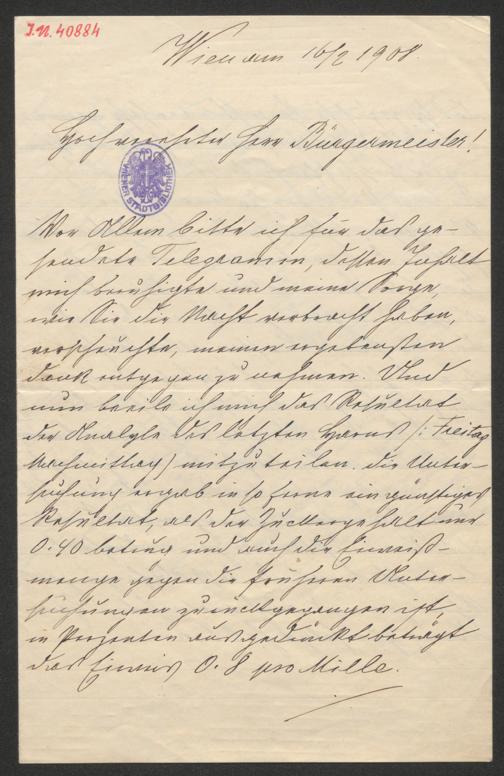 J.N. 40884
Wien am 16/2 1908.
Hochverehrter Herr Bürgermeister!
WIENER STADTBIBLIOTHEK
Vor Allem bitte ich für das ge-
sendete Telegramm, dessen Inhalt
mich beruhigte und meine Sorge,
wie Sie die Nacht verbracht haben,
verscheuchte, meinen ergebensten
Dank entgegen zu nehmen. Und
nun beeile ich mich das Resultat
der Analyse des letzten Harns (: Freitag
Nachmittag) mitzuteilen. Die Unter-
suchung ergab in so ferne ein günstiges
Resultat, als der Zuckergehalt nur
0.40 betrug und auch die Eiweiß-
menge gegen die früheren Unter-
suchungen zurückgegangen ist,
in Perzenten ausgedrückt beträgt
das Eiweis 0.8 pro Mille.